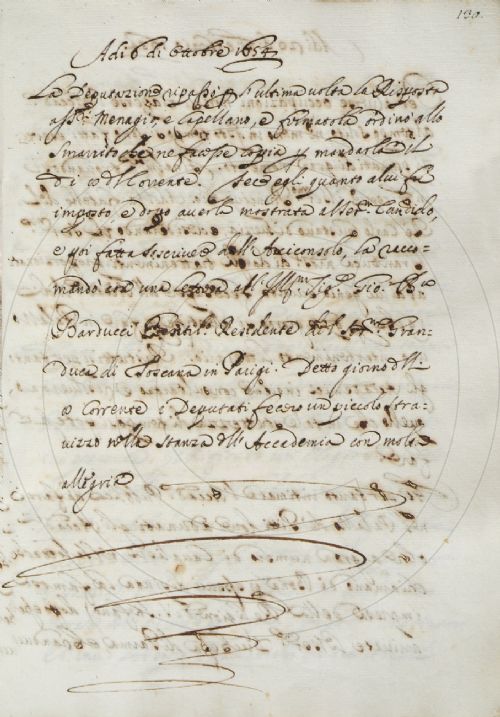 130.
Adi 6 di Ottobre 1654
La Deputazione ripassò p l'ultima volta la Risposta
a Menagio, e Capellano, e fermatola ordinò allo
Smarrito che ne facesse copia p mandarla il
dì corrente. fece egli quanto a lui fu
imposto, e dopo averla mostrata al Candido,
e poi fatta soscrivere dall' Arciconsolo, la racco-
mandò con una lettera all' Illmo Sig. Gio. Bta
Barducci Residente del Gran-
duca di Toscana in Parigi. Detto giorno
corrente i Deputati fecero un piccolo stra-
vizzo nella stanza dll' Accademia con molta
allegria